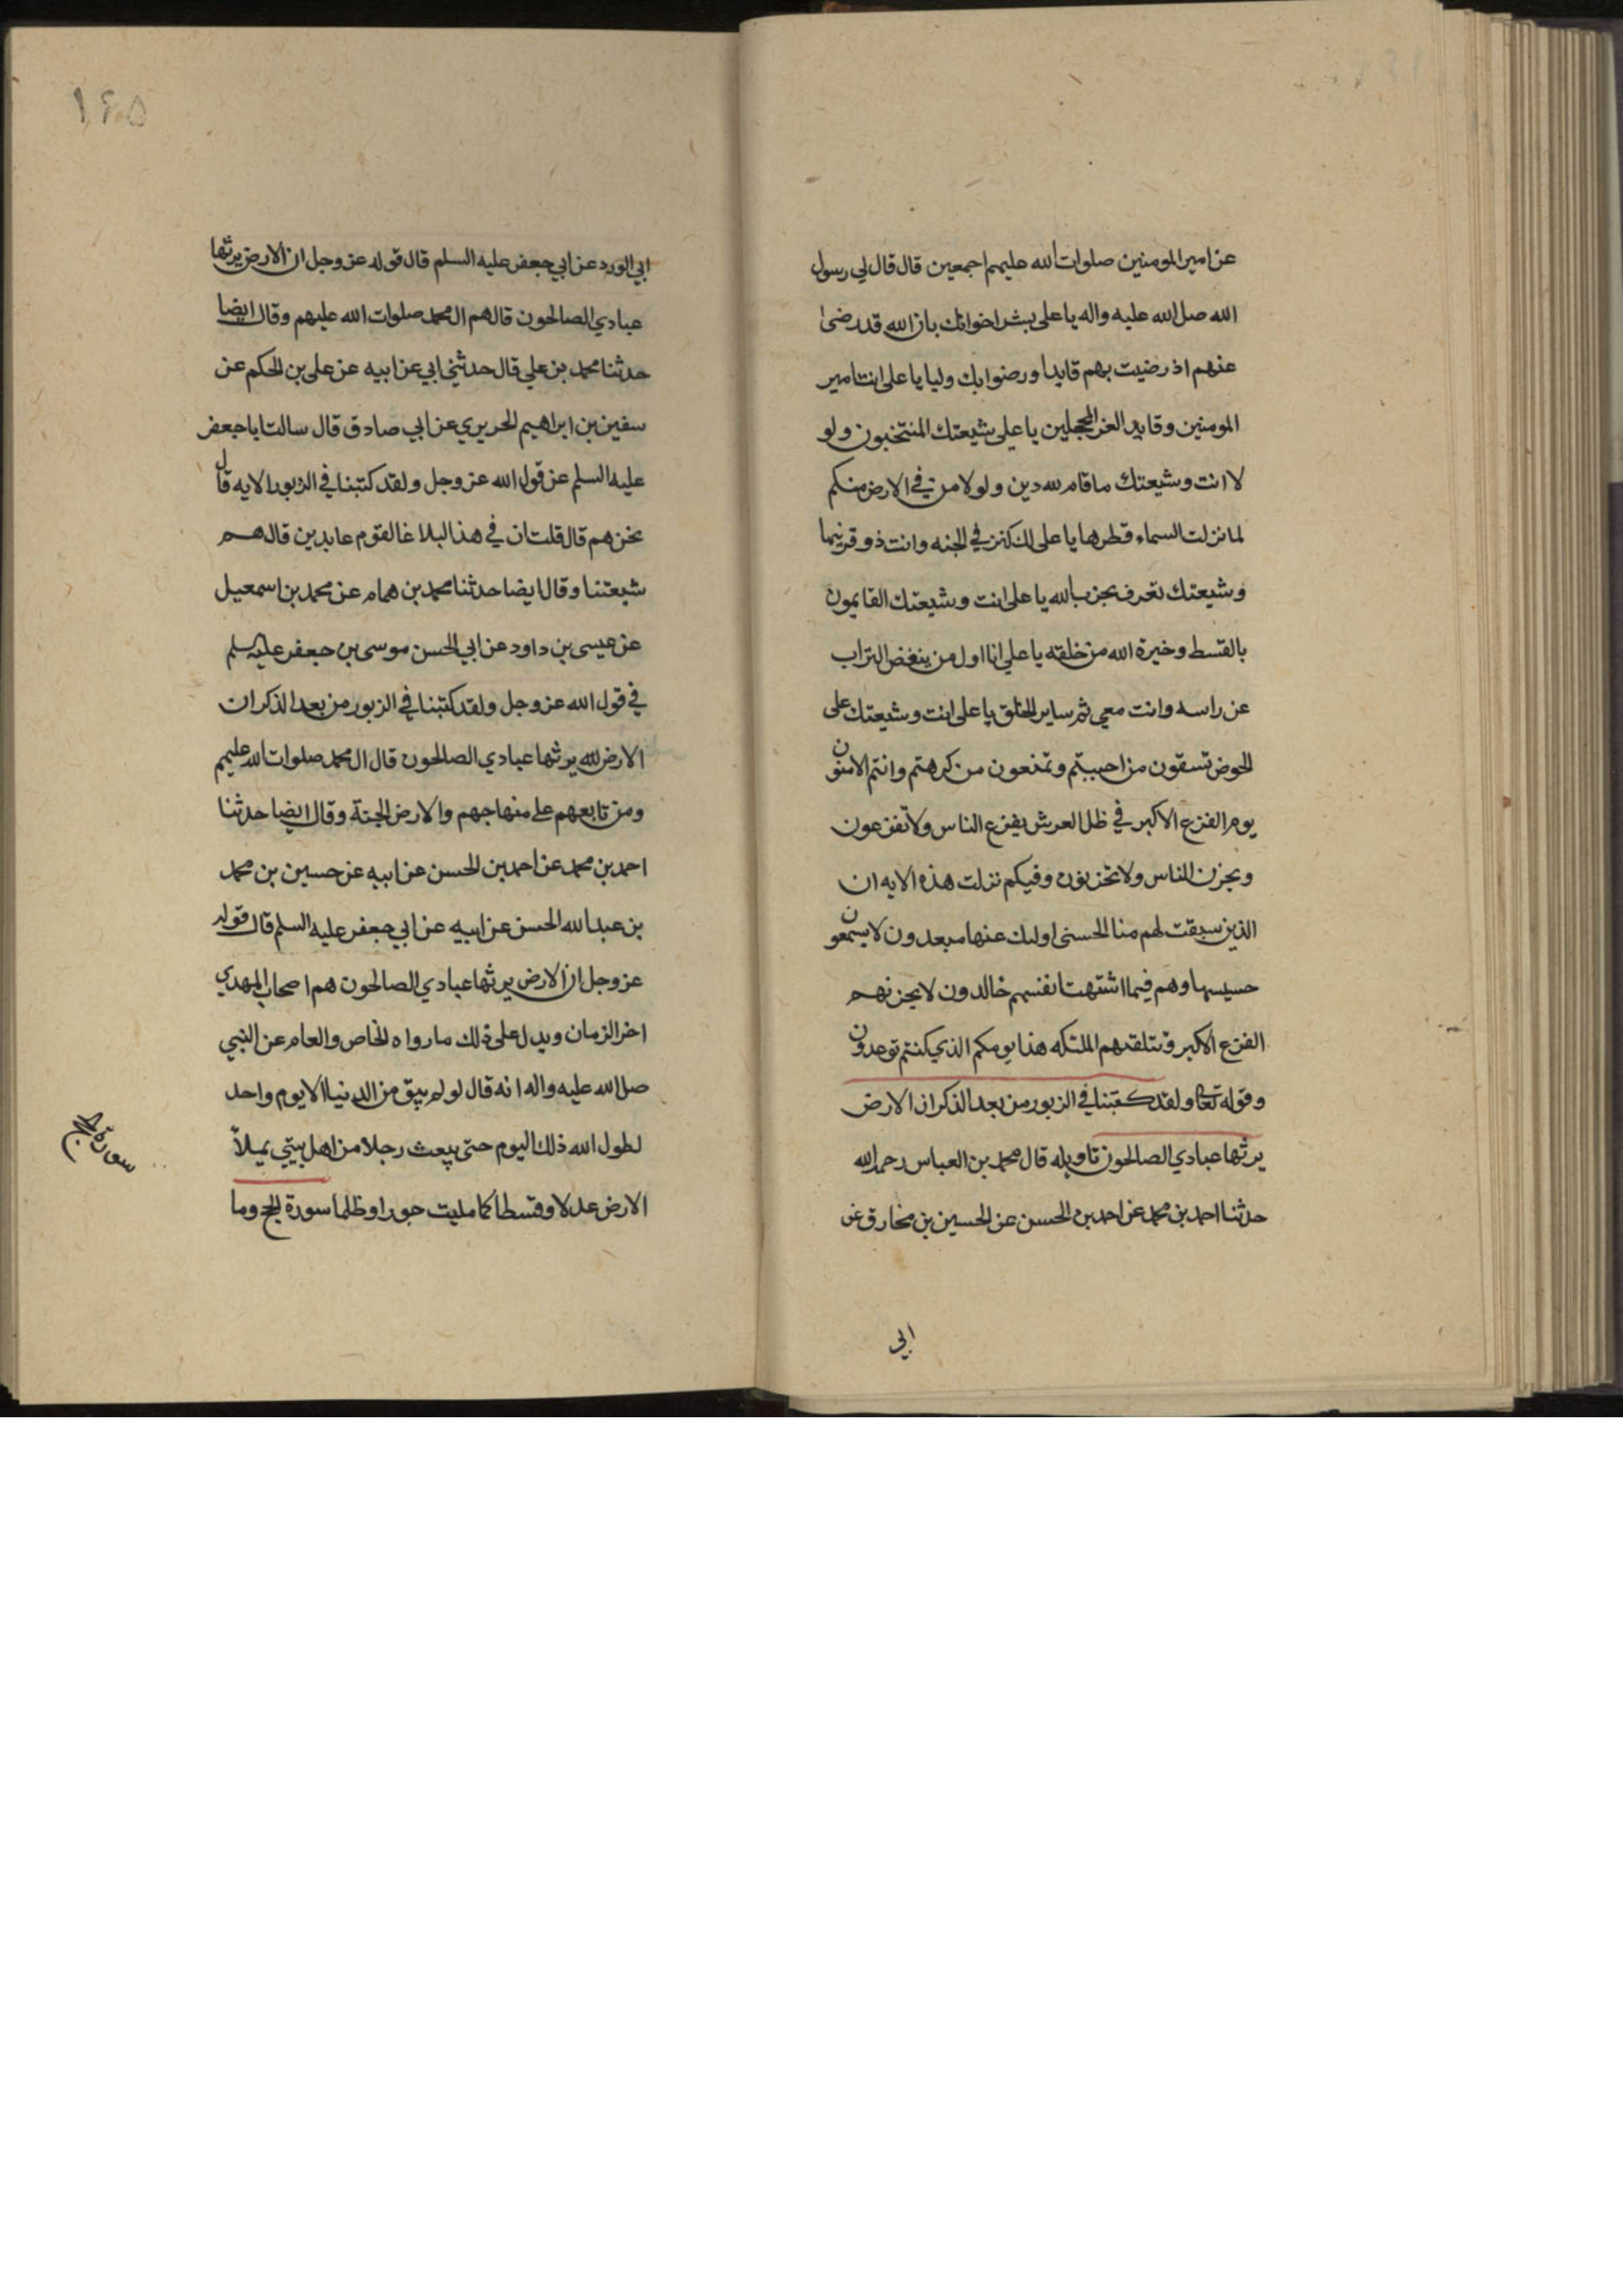 عن امير المومنين صلوات الله عليهم اجمعين قال قال لي رسول
الله صلى الله عليه واله يا على بشر اخوانك بان الله قد رضى
عنهم اذ رضيت بهم قايدا ورضوا بك وليا يا على انت امير
المومنين وقايد الغر المحجلين يا على شيعتك المنتخبون ولو
لا انت وشيعتك ما قام لله دين ولولا من في الارض منكم
لما نزلت السماء قطرها يا على لك كنز في الجنه وانت ذو قرنيها
وشيعتك تعرف بحزب الله يا على انت وشيعتك القايمون
بالقسط وخيرة الله من خلقه يا علي انا اول من ينفض التراب
عن راسه وانت معي ثم ساير الخلق يا على انت وشيعتك على
الحوض تسقون من احببتم وتمنعون من كرهتم وانتم الامنون
يوم الفزع الاكبر في ظل العرش يفزع الناس ولا تفزعون
ويحزن الناس ولا تحزنون وفيكم نزلت هذه الايه ان
الذين سبقت لهم منا الحسنى اولىك عنها مبعدون لا يسمعون
حسيسها وهم فيما اشتهت انفسهم خالدون لا يحزنهم
الفزع الاكبر وتتلقهم الملئكه هذا يومكم الذي كنتم توعدون
وقوله تعالى ولقد كتبنا في الزبور من بعد الذكر ان الارض
يرثها عبادي الصالحون تاويله قال محمد بن العباس رحمه الله
حدثنا احمد بن محمد عن احمد بن الحسن عن الحسين بن مخارق عن
ابي
١۶۵
ابي الورد عن ابي جعفر عليه السلم قال قوله عز وجل ان الارض يرثها
عبادي الصالحون قال هم ال محمد صلوات الله عليهم وقال ايضا
حدثنا محمد بن علي قال حدثني ابي عن ابيه عن على بن الحكم عن
سفين بن ابراهيم الحريري عن ابي صادق قال سالت ابا جعفر
عليه السلم عن قول الله عز وجل ولقد كتبنا في الزبور الايه قال
نحن هم قال قلت ان في هذا لبلاغا لقوم عابدين قال هم
شيعتنا وقال ايضا حدثنا محمد بن همام عن محمد بن اسمعيل
عن عيسى بن داود عن ابي الحسن موسى بن جعفر عليه سلم
في قول الله عز وجل ولقد كتبنا في الزبور من بعد الذكر ان
الارض لله يرثها عبادي الصالحون قال ال محمد صلوات الله عليهم
ومن تابعهم على منهاجهم والارض الجنة وقال ايضا حدثنا
احمد بن محمد عن احمد بن الحسن عن ابيه عن حسين بن محمد
بن عبد الله الحسن عن ابيه عن ابي جعفر عليه السلم قال قوله
عز وجل ان الارض يرثها عبادي الصالحون هم اصحاب المهدي
اخر الزمان ويدل على ذلك ما رواه الخاص والعام عن النبي
صل الله عليه واله انه قال لو لم يبق من الدنيا الا يوم واحد
لطول الله ذلك اليوم حتى يبعث رجلا من اهل بيتي يملأ
الارض عدلا وقسطا كما مليت جورا وظلما سورة الحج وما
سورة الحج